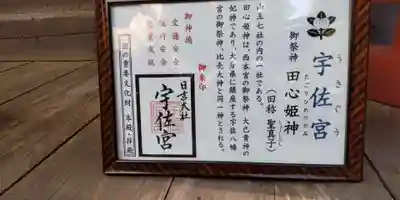 宇佐宮
うさぐう
御祭神
田心姫神
たごりひめのかみ
(旧称 聖真子)
山王七社の内の一社である。
田心姫神は、西本宮の御祭神 大己貴神の
妃神であり、大分県に鎮座する宇佐八幡
宮の御祭神、比売大神と同一神とされる。
御朱印
日吉大社
宇佐宮
御神徳
交通安全
国の重要文化財 本殿・拝殿